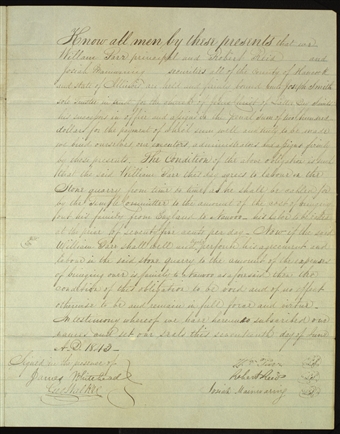 Know all men by these presents that we
William principal and Robert Reid and
Josiah Manwaring securities, all of the county of Hancock
and State of Illinois are held and firmly bound unto Joseph Smith
in trust for the of Christ of Latter Day Saints
his successors in office and assigns in the penal sum of two hundred
dollars for the payment of which sum well and truly to be made
we bind ourselves our executors, administrators & assigns firmly
by these presents. The Condition of the above obligation is such
that the said William this day agrees to labour in the
Stone quarry from time to time as he shall be called for
by the Temple Committee to the amount of the cost of bringing
out his family from England to Nauvoo his labor to be rated
at the price of seventy five cents per day. Now if the said
William shall well and truly perform his agreement and
labour in the said Stone quarry to the amount of the expenses
of bringing over his family to Nauvoo as aforesaid then the
condition of this obligation to be void and of no effect
otherwise to be and remain in full force and virtue.
In testimony whereof we have hereunto subscribed our
names and set our seals this seventh day of June
A.D. 1843.
Signed in the presence of
James Whitehead
Robert Reid
Josiah Manwaring